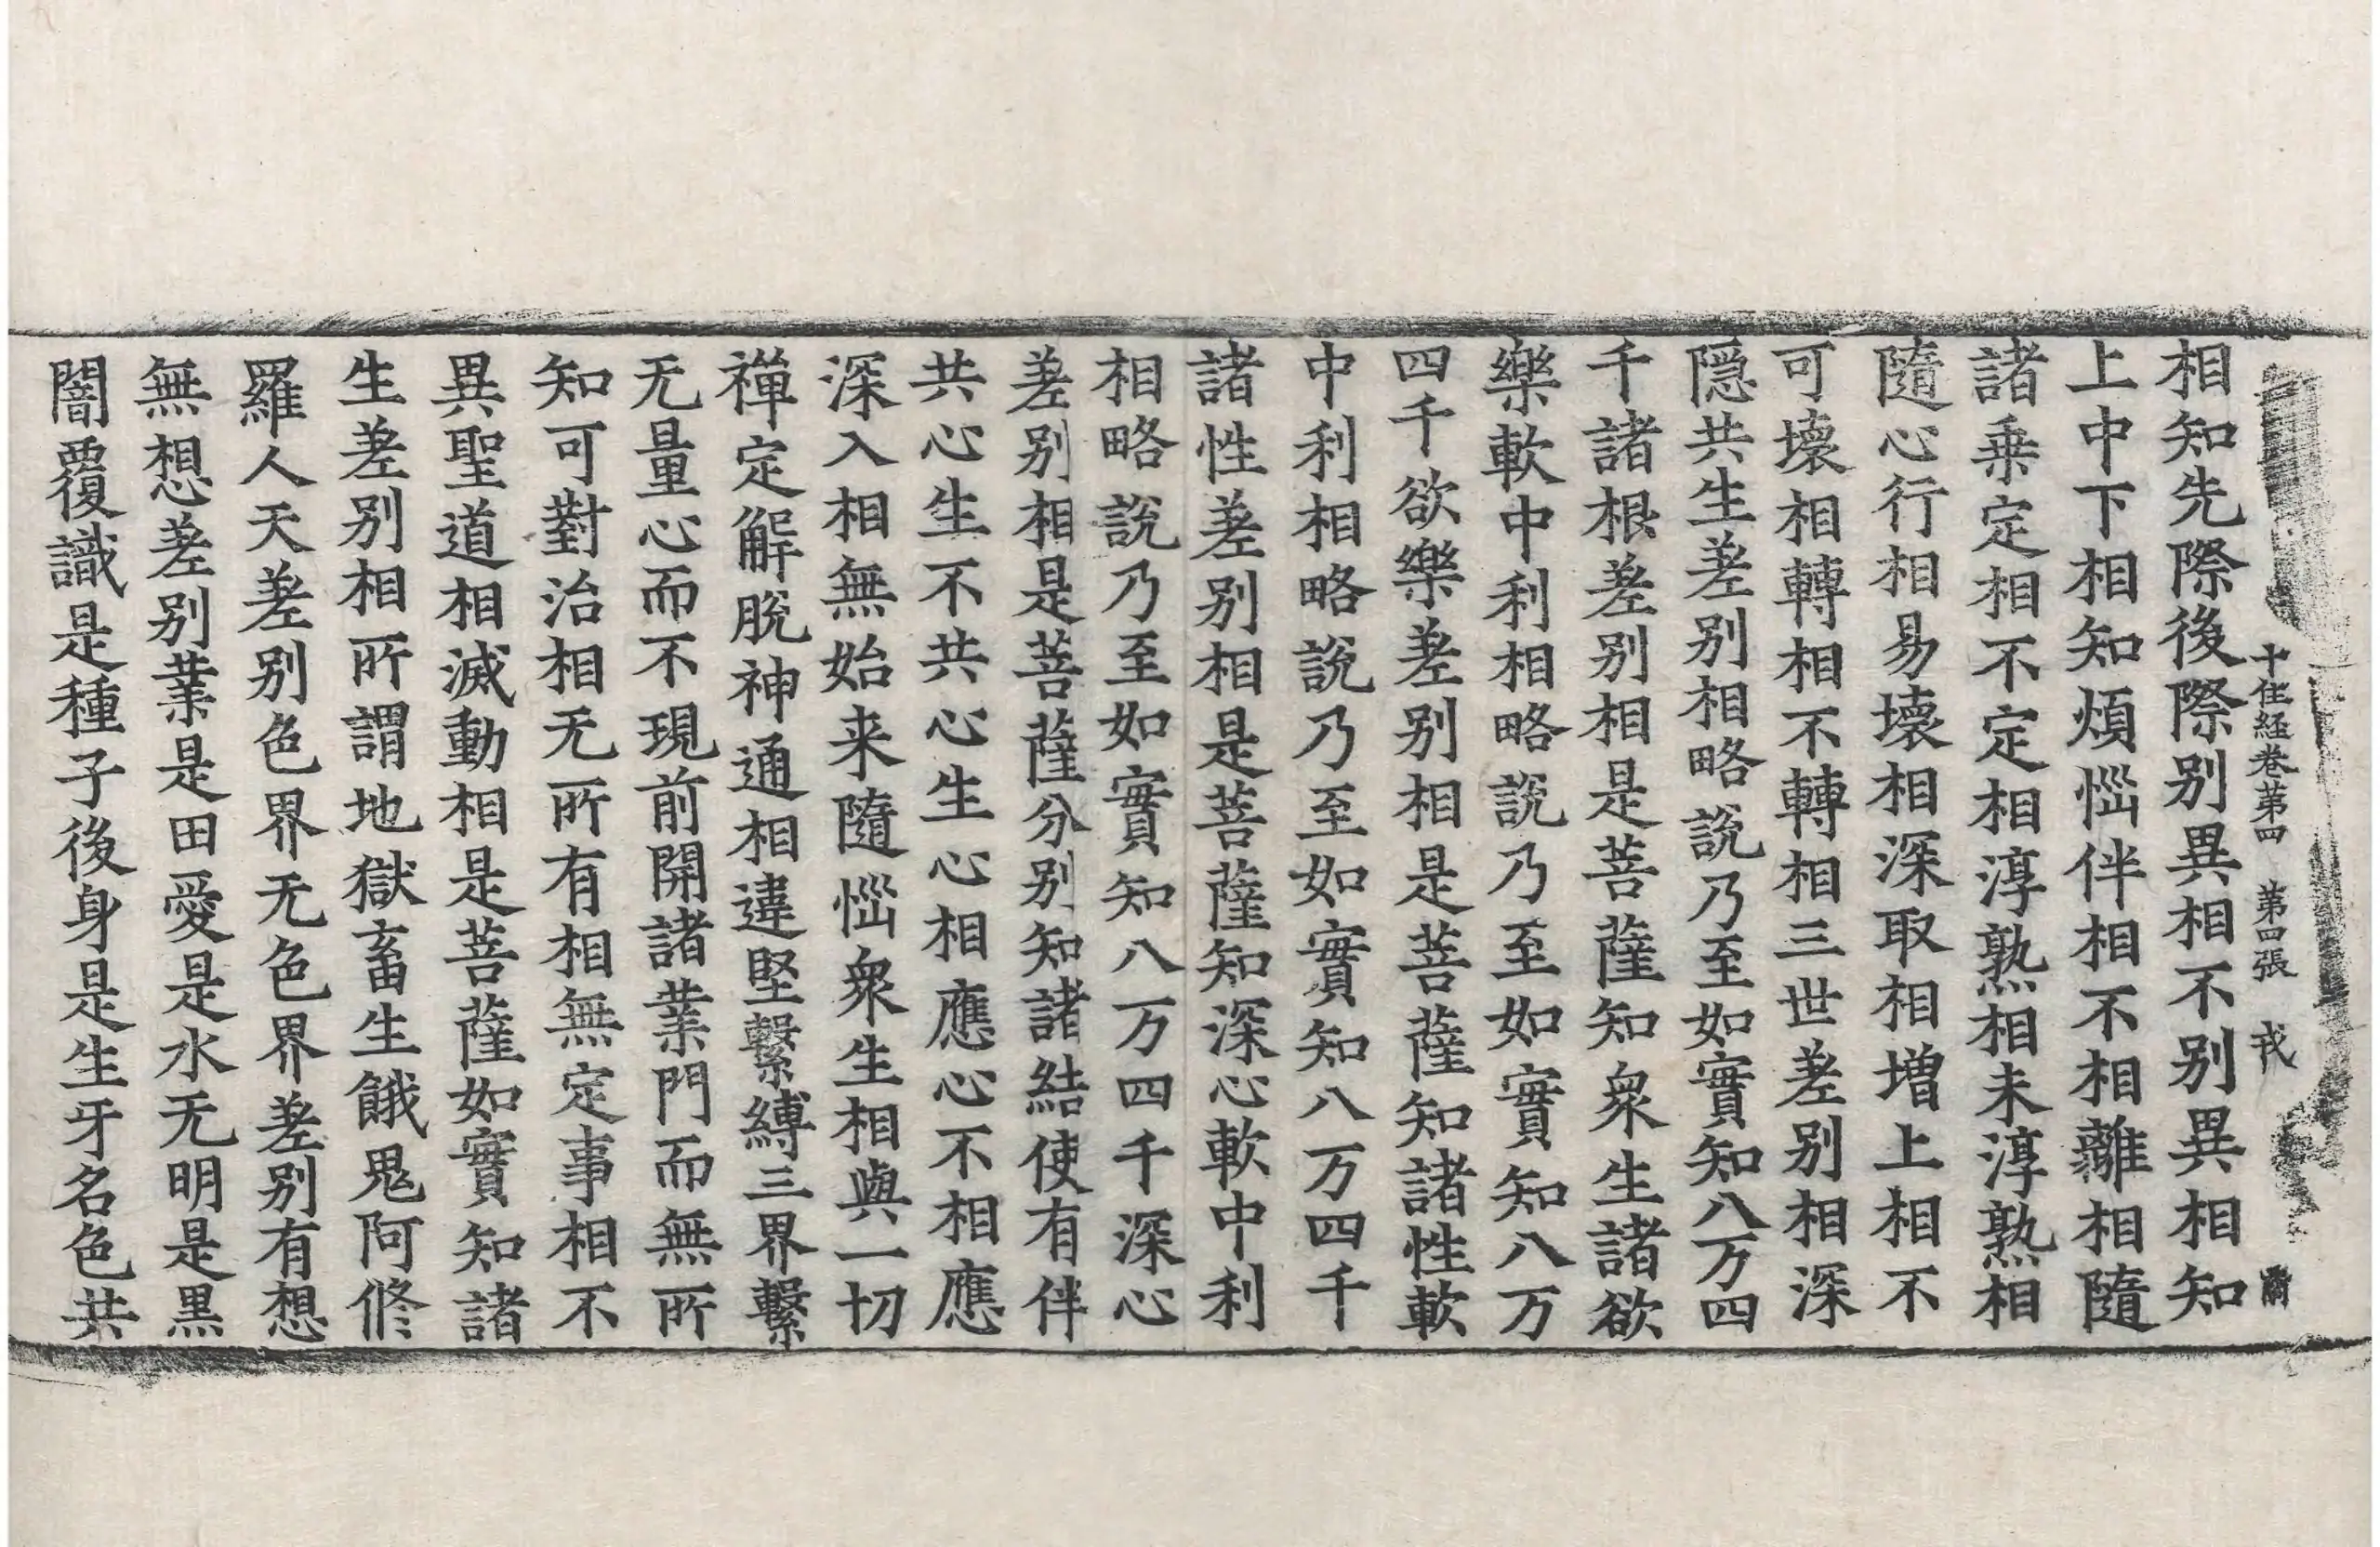 十住経卷苐四 苐四張 戎
相知先際後際别異相不别異相知
上中下相知煩惱伴相不相離相隨
諸乗定相不定相淳熟相未淳熟相
隨心行相易壊相深取相増上相不
可壊相轉相不轉相三世差别相深
隠共生差别相略說乃至如實知八万四
千諸根差别相是菩薩知衆生諸欲
樂軟中利相略說乃至如實知八万
四千欲樂差别相是菩薩知諸性軟
中利相略說乃至如實知八万四千
諸性差别相是菩薩知深心軟中利
相略說乃至如實知八万四千深心
差别相是菩薩分别知諸結使有伴
共心生不共心生心相應心不相應
深入相無始来隨惱衆生相與一切
禪定解脫神通相違堅繫縛三界繫
无量心而不現前開諸業門而無所
知可對治相无所有相無定事相不
異聖道相滅動相是菩薩如實知諸
生差别相所謂地獄畜生餓鬼阿修
羅人天差别色界无色界差别有想
無想差别業是田愛是水无明是黒
闇覆識是種子後身是生牙名色共